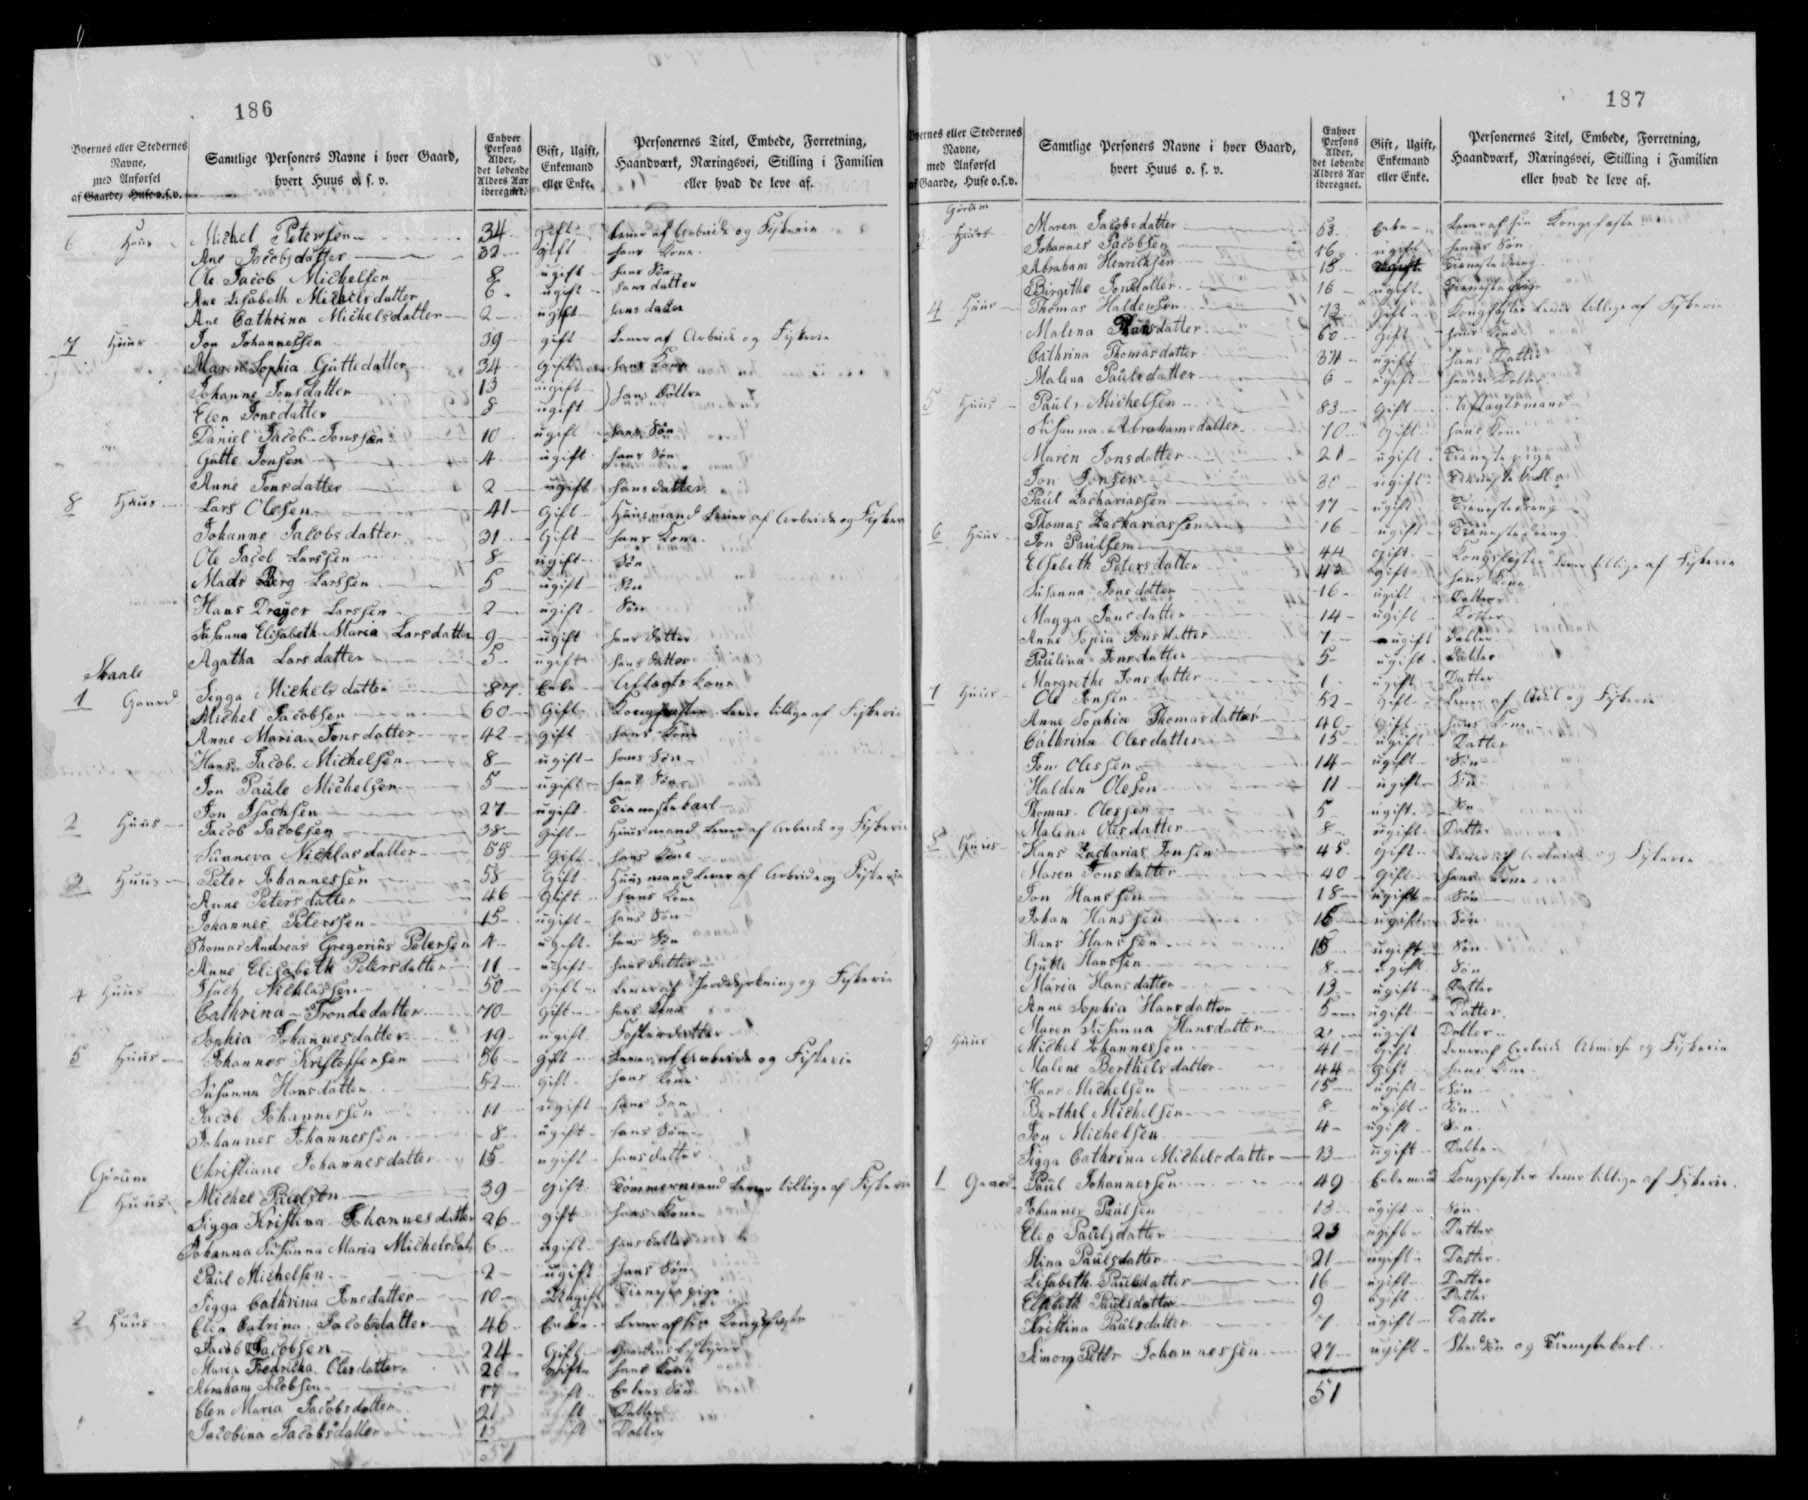 186
Byernes eller Stedernes Navne, med Anførsel af Gaarde, Huse o.s.v.
Samtlige Personers Navne i hver Gaard, hvert Huus o. s. v.
Enhver Persons Alder, det løbende Alders Aar iberegnet.
Gift, Ugift, Enkemand eller Enke.
Personernes Titel, Embede, Forretning, Haandværk, Næringsvei, Stilling i Familien eller hvad de leve af.
6 Huus Michel Peterssen 34 gift Lever af Arbeide og Fiskerie
Ane Jacobsdatter 32 Gift hans Kone
Ole Jacob Michelsen 8 ugift hans Søn
Ane Lisabeth Michelsdatter 6 ugift hans datter
Ane Cathrina Michelsdatter 2 ugift hans datter
7 Huus Jon Johannessen 39 gift Lever af Arbeide og Fiskerie
Maren Sophia Guttedatter 34 Gift hans Kone
Johanne Jonsdatter 13 ugift hans Døttre
Elen Jonsdatter 8 ugift
Daniel Jacob Jonssen 10 ugift hans Søn
Gutte Jonsen 4 ugift hans Søn
Anne Jonsdatter 2 ugift hans datter
8 Huus Lars Olesen 41 Gift Huusmand Lever af Arbeide og Fiskeri
Johanne Jacobsdatter 31 Gift hans Kone
Ole Jacob Larssen 8 ugift Søn
Mads Berg Larssen 5 ugift Søn
Hans Drejer Larssen 2 ugift Søn
Susanna Elisabeth Maria Larsdatter 9 ugift hans datter
Agatha Larsdatter 5 ugift hans datter
Skaale
1 Gaard Sigga Michelsdatter 87 Enke Aftægts Kone
Michel Jacobsen 60 Gift Kongsfæster Lever tillige af Fiskerie
Anne Maria Jonsdatter 42 gift hans Kone
Hans Jacob Michelsen 8 ugift hans Søn
Jon Paule Michelsen 5 ugift hans Søn
Jon Isachsen 27 ugift Tienestekarl
2 Huus Jacob Jacobsen 38 Gift Huusmand Lever af Arbeide og Fiskerie
Sunneva Nicklasdatter 58 Gift hans Kone
3 Huus Peter Johannessen 58 Gift Huusmand Lever af Arbeide og Fiskerie
Anne Petersdatter 46 Gift hans Kone
Johannes Peterssen 15 ugift hans Søn
Thomas Andreas Gregorius Petersen 4 ugift hans Søn
Anne Elisabeth Petersdatter 11 ugift hans datter
4 Huus Isach Nicklassen 50 Gift Lever af Jorddyrkning og Fiskerie
Cathrina Trondedatter 70 Gift hans Kone
Sophia Johannesdatter 19 ugift Fosterdatter
5 Huus Johannes Kristoffersen 56 Gift Lever af Arbeide og Fiskerie
Susanna Hansdatter 52 gift hans Kone
Jacob Johannessen 11 ugift hans Søn
Johannes Johannessen 8 ugift hans Søn
Christiane Johannesdatter 15 ugift hans datter
1 Huus Michel Paulsen 39 Gift Tømmermand Lever tillige af Fiskerie
Sigga Kristina Johannesdatter 26 gift hans Kone
Johanna Susanna Maria Michelsdat. 6 ugift hans datter
Paul Michelsen 2 ugift hans Søn
Sigga Cathrina Jonsdatter 10 Ugift Tienestepige
2 Huus Elia Catrina Jacobsdatter 46 Enke Lever af sin Kongsfæste
Jacob Jacobsen 24 Gift
Maria Fredrikka Olesdatter 26 Gift hans Kone
Abraham Jacobsen 17 ugift Enkens Søn
Elen Maria Jacobsdatter 21 Datter
Jacobina Jacobsdatter 13 Datter
51
187
Byernes eller Stedernes Navne, med Anførsel af Gaarde, Huse o.s.v.
Samtlige Personers Navne i hver Gaard, hvert Huus o. s. v.
Enhver Persons Alder, det løbende Alders Aar iberegnet.
Gift, Ugift, Enkemand eller Enke.
Personernes Titel, Embede, Forretning, Haandværk, Næringsvei, Stilling i Familien eller hvad de leve af.
Huus Maren Jacobsdatter 53 Enke Lever af sin Kongsfæste
Johannes Jacobsen 16 ugift hendes Søn
Abraham Henricksen 18 ugift Tienestedreng
Birgithe Jonsdatter 16 ugift
4 Huus Thomas Haldensen 73 Gift Kongsfæster Lever tillige af Fiskerie
Malena 60 Gift hans Kone
Cathrina Thomasdatter 34 ugift hans Datter
Malena Paulsdatter 6 ugift
5 Huus Paul Michelsen 83 Gift Aftægtsmand
Susanna Abrahamsdatter 70 Gift hans Kone
Maren Jonsdatter 21 ugift Tienestepige
Jon Jensen ugift Tienestekarl
Paul Zachariassen 17 ugift Tienestedreng
Thomas Zachariassen 16 ugift Tienestedreng
6 Huus Jon Paulsen 44 Gift Kongsfæster Lever tillige af Fiskerie
Elsebeth Petersdatter Gift hans Kone
Susanna Jonsdatter 16 ugift Datter
Magga Jonsdatter 14 ugift Datter
Anne Sopia Jonsdatter 7 ugift Datter
Paulina Jonsdatter 5 ugift Datter
Margrethe Jonsdatter 1 ugift Datter
7 Huus Ole Jonsen 52 Gift Lever af Avl og Fiskerie
Anne Sophia Thomasdatter 40 Gift hans Kone
Cathrina Olesdatter 15 ugift Datter
Jon Olessen 14 ugift Søn
Halden Olesen 11 ugift Søn
Thomas Olessen 5 ugift Søn
Malena Olesdatter 8 ugift Datter
Huus Hans Zacharias Jonsen 45 Gift Lever af Arbeide og Fiskerie
Maren Jonsdatter 40 Gift hans Kone
Jon Hanssen 18 ugift Søn
Johan Hanssen 16 ugift Søn
Hans Hanssen 15 ugift Søn
Gutte Hanssen 8 ugift Søn
Maria Hansdatter 13 ugift Datter
Anne Sophia Hansdatter 5 ugift Datter
Maren Susanna Hansdatter 2 ugift Datter
9 Huus Michel Johannessen 41 Gift Lever af Arbeide Almisse og Fiskerie
Malene Berthelsdatter 44 Gift hans Kone
Hans Michelsen 15 ugift Søn
Berthel Michelsen 8 ugift Søn
Jon Michelsen 4 ugift Søn
Sigga Cathrina Michelsdatter 13 ugift Datter
1 Gaard Paul Johannessen 49 Enkemand Kongsfæster Lever tillige af Fiskerie
Johannes Paulsen 13 ugift Søn
Elen Paulsdatter 23 ugift Datter
Stina Paulsdatter 21 ugift Datter
Lisabeth Paulsdatter 16 ugift Datter
Elsebeth Paulsdatter 9 ugift Datter
Kristina Paulsdatter 7 ugift Datter
Simon Peter Johannessen 27 ugift og Tienestekarl
51